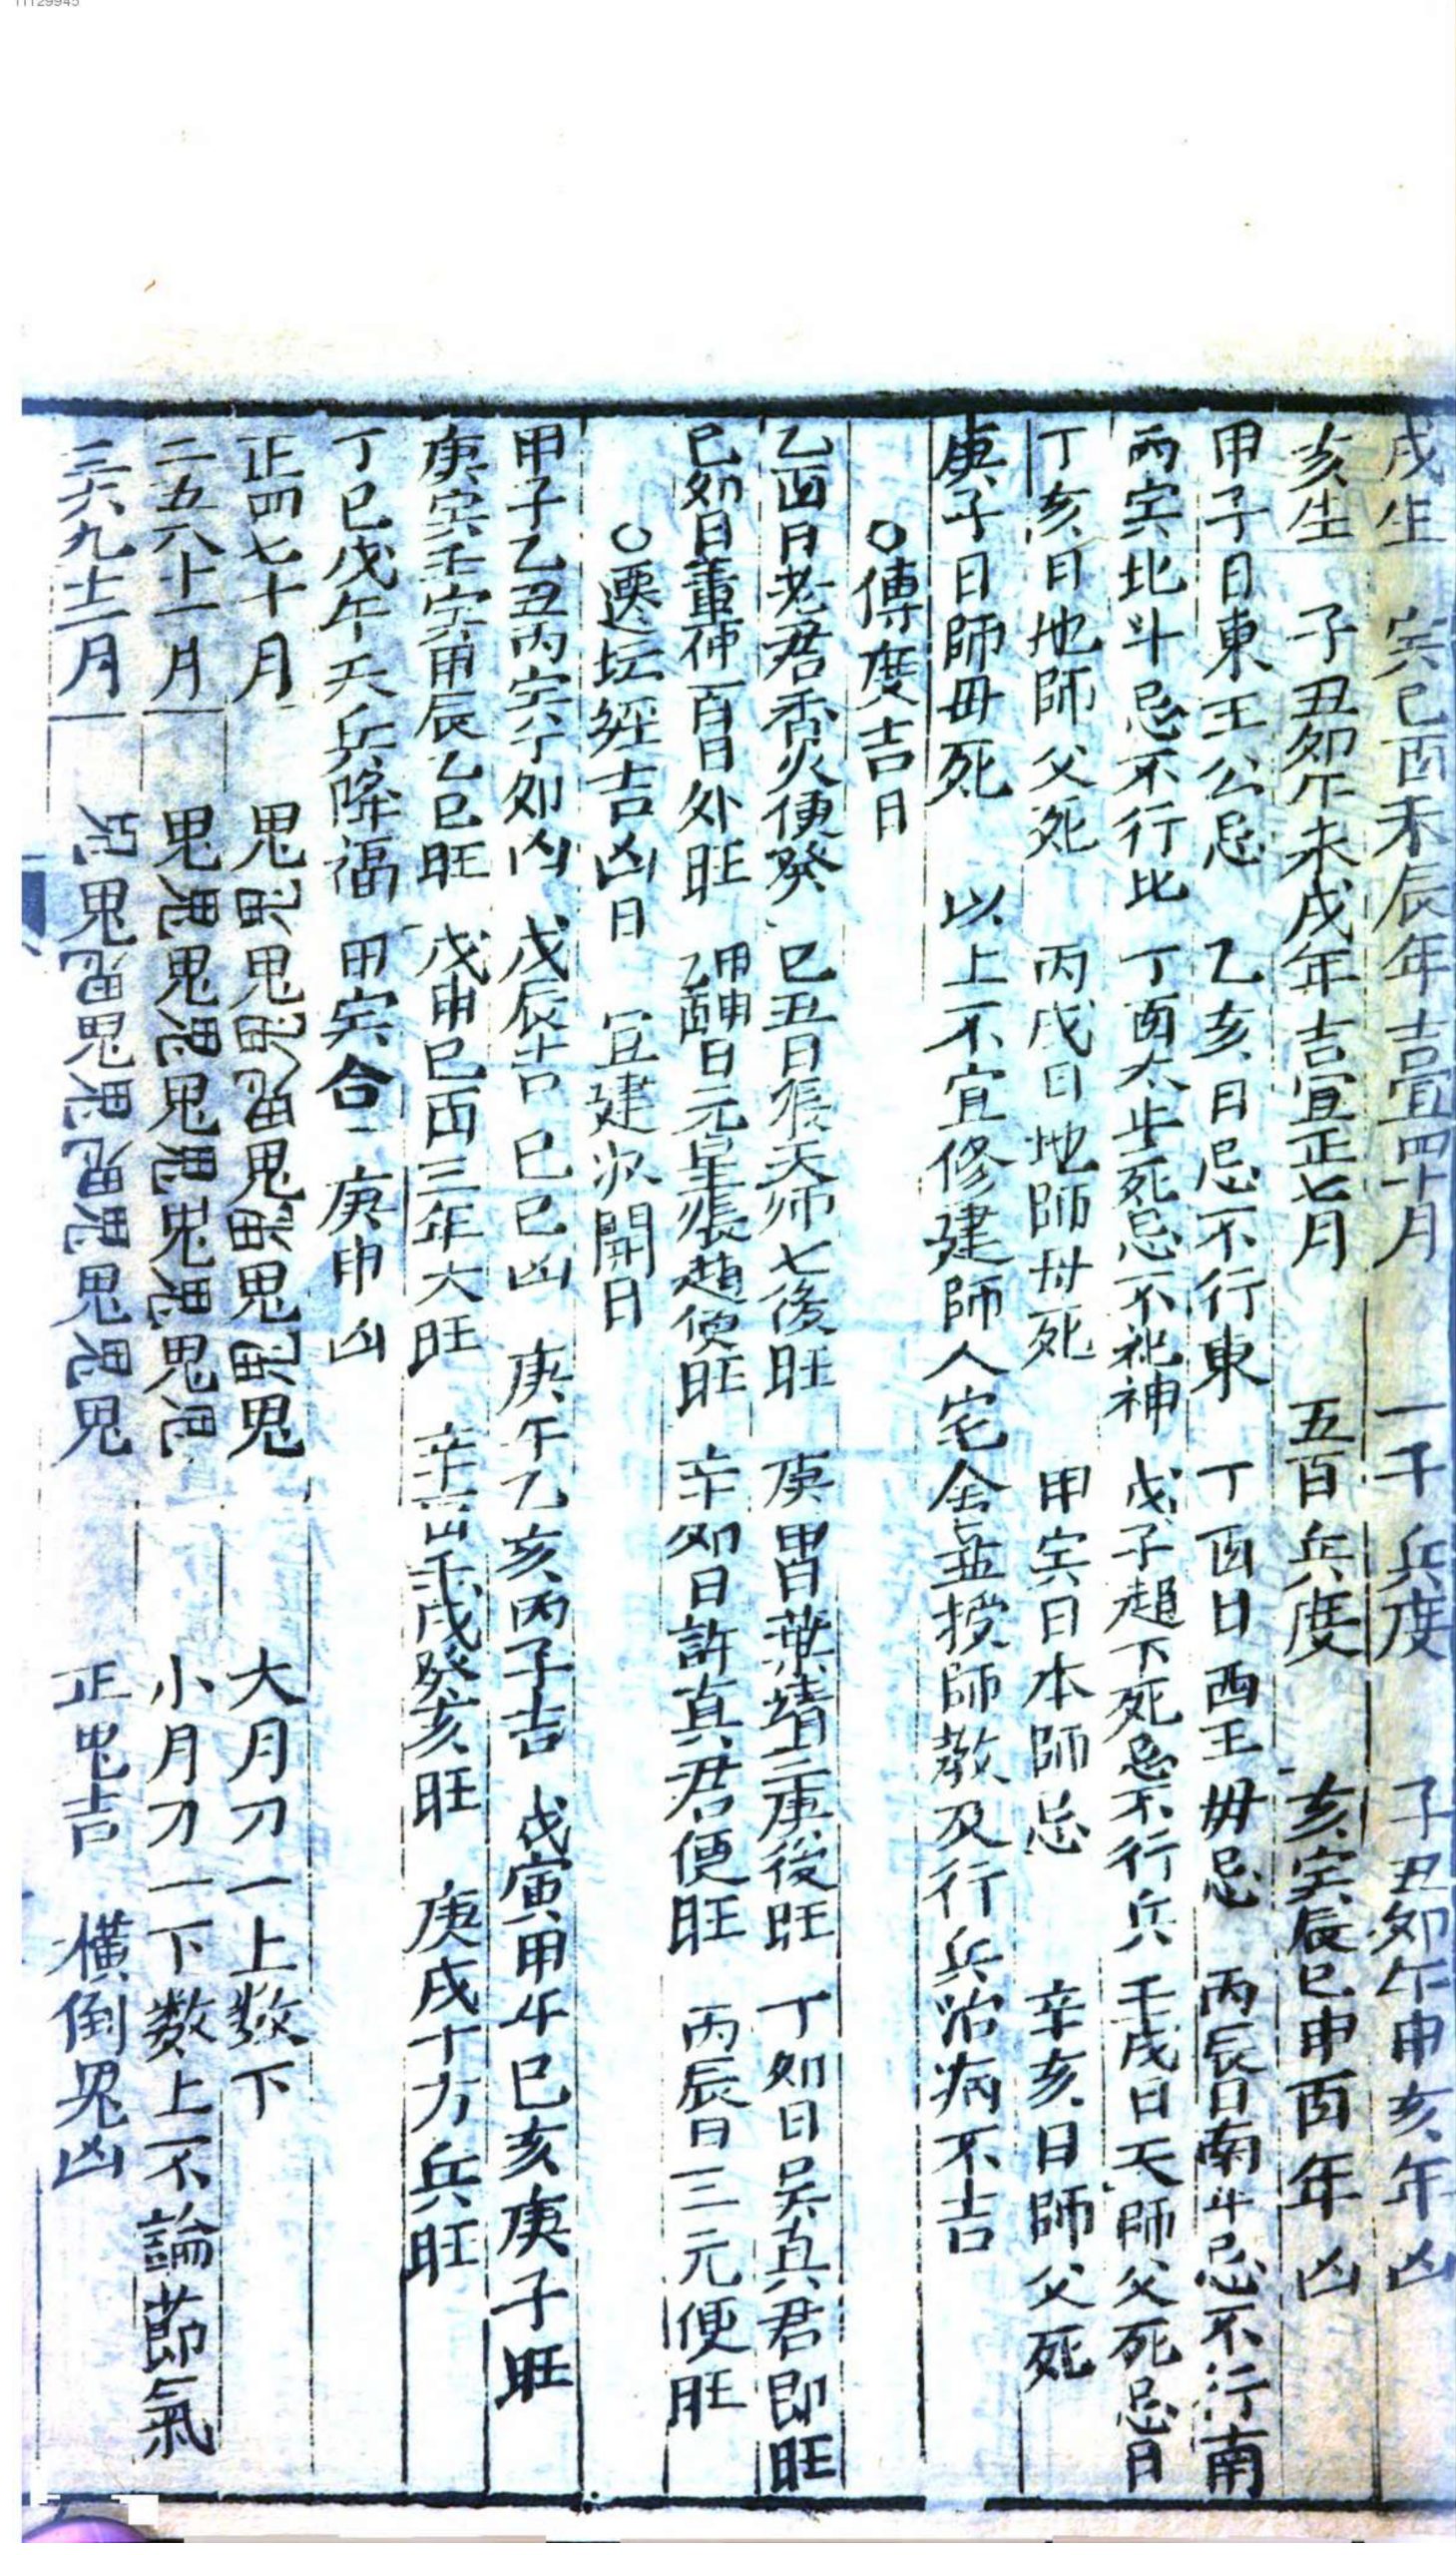 戌生 寅巳酉未辰年吉宜四十月 一千兵度 子丑卯午申亥年凶
亥生 子丑卯午未戌年吉宜正七月 五百兵度 亥寅辰巳申酉年凶
甲子日東王公忌 乙亥日忌不行東 丁酉日西王毋忌 丙辰日南斗忌不行南
丙寅北斗忌不行北 丁酉太歩死忌不祀神 戊子趙下死忌不行兵 壬戌日天師父死忌月
丁亥日地師父死 丙戌日地師母死 甲寅日本師忌 辛亥日師父死
庚子日師毋死 以上不宜修建師人宅舍並授師教及行兵治病不吉
○傳度吉日
乙酉日老君香火便發 己丑日張天师七後旺 庚日葉靖二庚後旺 丁卯日吴真君即旺
己卯日董仲一百日外旺 甲申乙酉日元皇張趙便旺 辛卯日許真君便旺 丙辰日三元便旺
○遷坛經吉凶日 宜建次開日
甲子乙丑丙寅丁卯凶 戊辰吉 己巳凶 庚午乙亥丙子吉 戊寅甲午己亥庚子旺
庚寅壬寅甲辰乙巳旺 戊申己酉三年大旺 辛壬戌癸亥旺 庚戌十万兵旺
丁巳戊午天兵降福 甲寅合 庚申凶
正四七十月 鬼鬼鬼鬼鬼鬼鬼鬼鬼鬼 大月刀一上数下
二五八十一月 鬼鬼鬼鬼鬼鬼鬼鬼鬼鬼 小月刀一下数上不論節氣
三六九十二月 鬼鬼鬼鬼鬼鬼鬼鬼鬼鬼 正鬼吉 橫倒鬼凶
11129945